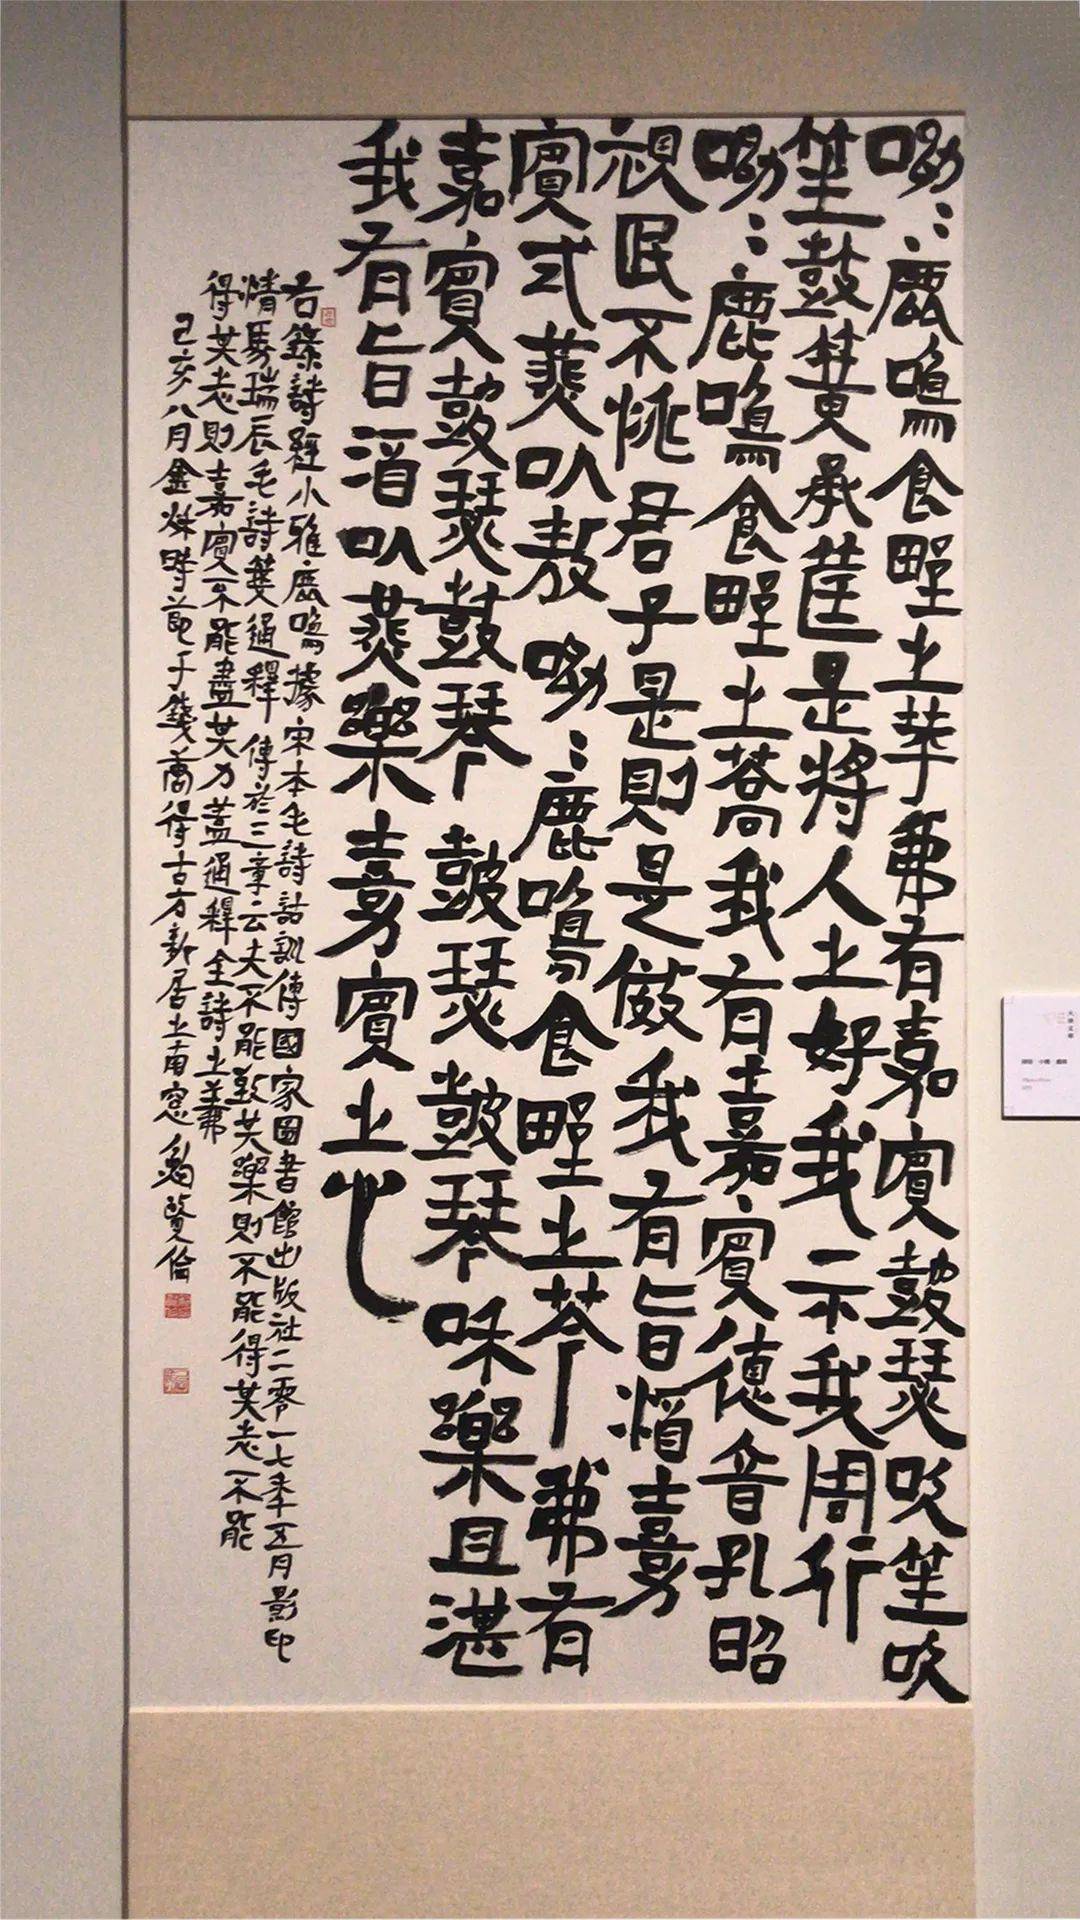 呦〻鹿鳴食野之苹我有嘉賓鼓瑟吹笙吹
笙鼓簧承筐是將人之好我示我周行
呦〻鹿鳴食野之蒿我有嘉賓德音孔昭
視民不恌君子是則是傚我有旨酒嘉
賓式燕㕥敖 呦〻鹿鳴食野之芩我有
嘉賓鼓瑟鼓琴 鼓瑟鼓琴和樂且湛
我有旨酒㕥燕樂嘉賓之心
右錄詩經小雅鹿鳴據宋本毛詩詁訓傳國家圖書館出版社二零一七年五月影印
清馬瑞辰毛詩箋通釋傳於三章云夫不能致其樂則不能得其志不能
得其志則嘉賓不能盡其力蓋通釋全詩之義
己亥八月金秋時節于錢喬得古方新居之南窗 賢倫